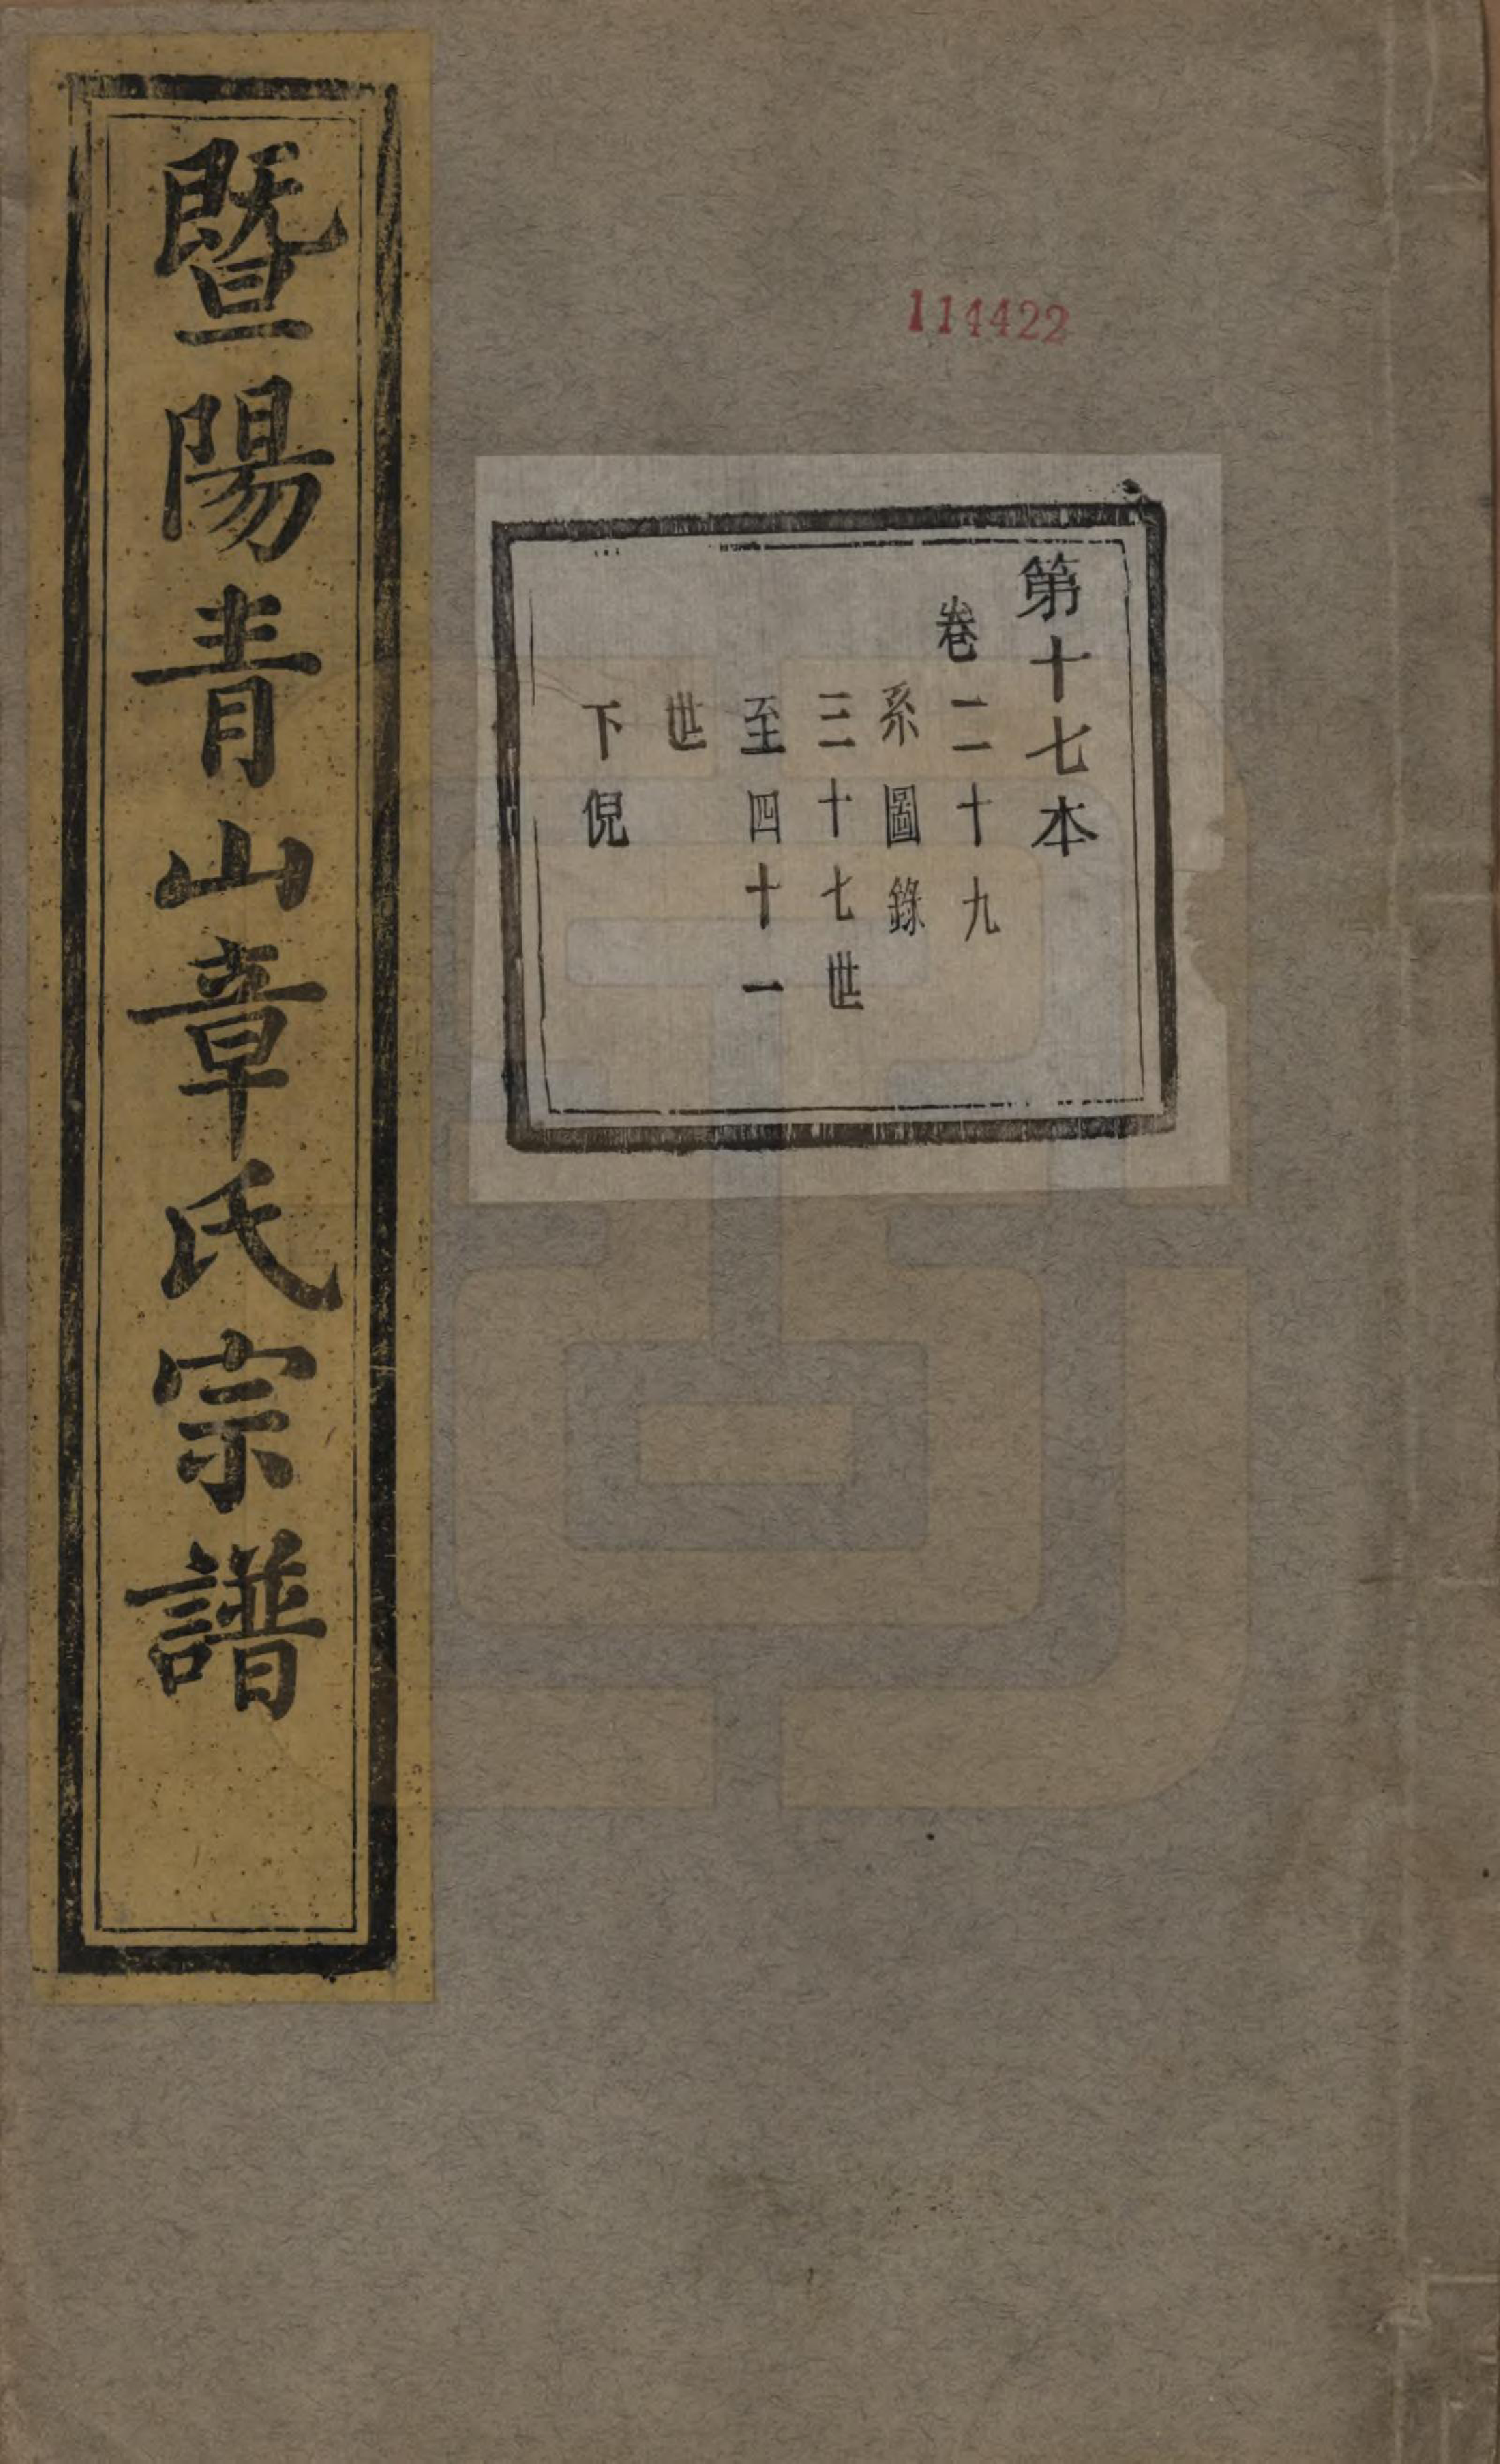 114422
第十七本
卷二十九
系圖錄
三十七世
至四十一
世
下倪
暨陽青山章氏宗譜